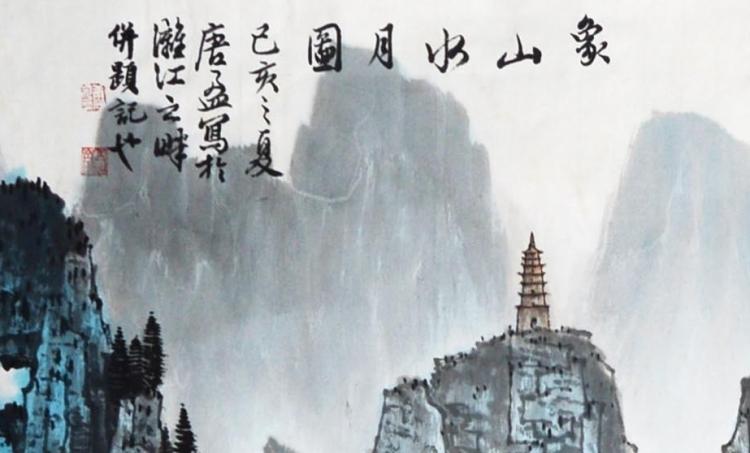 象山水月圖
己亥之夏
唐孟寫於
灕江之畔
併題記也